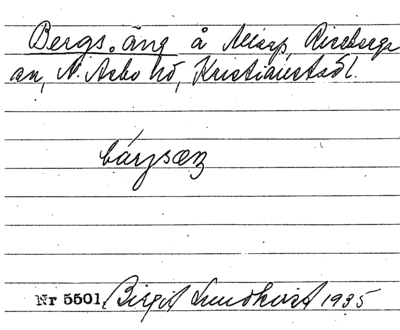 Bergs. äng å
sn, N. Åsbo hd, Kristianstads l.
bärjsæŋ
Nr 5501 Birgit Lundkvist 1935